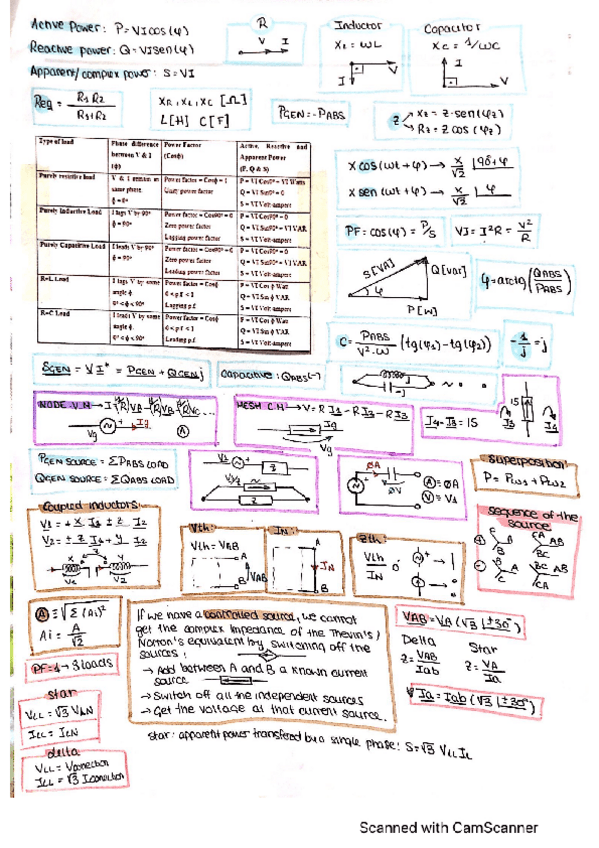 Active Power: P=VIcos(φ)
Reactive power: Q=VIsen(φ)
Apparent/complex power: S=VI
R
V I
Inductor
XL = ωL
I V
Capacitor
XC = 1/ωC
I
V
Req = R1 R2 / R1+R2
XR, XL, XC [Ω]
L[H] C[F]
PGEN=-PABS
Z
XZ = Z·sen(φZ)
RZ = Z cos(φZ)
Type of load | Phase difference between V & I (ϕ) | Power Factor (Cosϕ) | Active, Reactive and Apparent Power (P, Q & S)
Purely resistive load | V & I remain in same phase. ϕ = 0° | Power factor = Cosϕ = 1 Unity power factor | P = VI Cos0° = VI Watts Q = VI Sin0° = 0 S = VI Volt-ampere
Purely Inductive Load | I lags V by 90° ϕ = 90° | Power factor = Cos90° = 0 Zero power factor Lagging power factor | P = VI Cos90° = 0 Q = VI Sin90° = VI VAR S = VI Volt-ampere
Purely Capacitive Load | I leads V by 90° ϕ = 90° | Power factor = Cos90° = 0 Zero power factor Leading power factor | P = VI Cos90° = 0 Q = VI Sin90° = VI VAR S = VI Volt-ampere
R-L Load | I lags V by some angle ϕ. 0° < ϕ < 90° | Power factor = Cosϕ 0 < p.f < 1 Lagging p.f | P = VI Cos ϕ Watt Q = VI Sin ϕ VAR S = VI Volt-ampere
R-C Load | I leads V by some angle ϕ. 0° < ϕ < 90° | Power factor = Cosϕ 0 < p.f < 1 Leading p.f | P = VI Cos ϕ Watt Q = VI Sin ϕ VAR S = VI Volt-ampere
X cos(ωt + φ) → X/√2 |90+φ
X sen(ωt + φ) → X/√2 |φ
PF = cos(φ) = P/S
VI = I²R = V²/R
S[VA]
Q[var]
φ
P[W]
φ=arctg(QABS/PABS)
C = PABS/V²·ω (tg(φ1)-tg(φ2))
-1/j = j
SGEN = VI* = PGEN + QGENj
Capacitive: QABS(-)
NODE V.M
Vg
Ig
A
MESH C.M → V = R I1 - R I2 - R I3
Ig
Vg
PGEN SOURCE = ΣPABS LOAD
QGEN SOURCE = ΣQABS LOAD
Z
Z
ØA
ØV
A = ØA
Superposition
P = Pω1 + Pω2
Coupled inductors:
V1 = + X I1 ± Z I2
V2 = ± Z I1 + Y I2
X
Z
Y
V1
V2
Vth:
Vth = VAB
A
VAB
B
IN:
A
IN
B
Zth:
Vth/IN
sequence of the source
AB
BC
CA
A = √Σ(Ai)²
Ai = A/√2
If we have a controlled source, we cannot
get the complex impedance of the Thevin's/
Norton's equivalent by switching off the
sources:
→ Add between A and B a known current
source
→ Switch off all the independent sources
→ Get the voltage at that current source.
VAB=VA(√3 |±30°)
Delta
Z = VAB/Iab
Star
Z = VA/Ia
Ia = Iab(√3 |±30°)
PF=1→3 loads
star
VLL = √3 VLN
ILL = ILN
delta
VLL = Vconection
ILL = √3 Iconection
star: apparent power transfered by a single phase: S=√3 VLL IL
Scanned with CamScanner